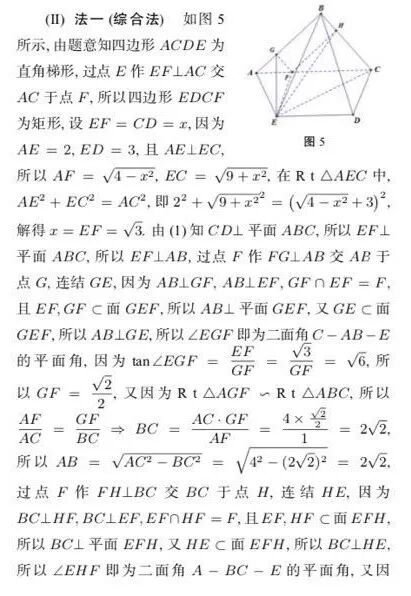 (II) 法一(综合法) 如图5
所示,由题意知四边形 ACDE 为
直角梯形,过点 E 作 EF⊥AC 交
AC 于点 F,所以四边形 EDCF
为矩形,设 EF = CD = x,因为
AE = 2, ED = 3, 且 AE⊥EC,
B
H
G
A
F
C
E
D
图5
所以 AF = √(4−x²), EC = √(9+x²), 在 Rt△AEC 中,
AE² + EC² = AC², 即 2² + √(9+x²)² = (√(4−x²)+3)²,
解得 x = EF = √3. 由 (1) 知 CD⊥平面 ABC, 所以 EF⊥
平面 ABC, 所以 EF⊥AB, 过点 F 作 FG⊥AB 交 AB 于
点 G, 连结 GE, 因为 AB⊥GF, AB⊥EF, GF∩EF = F,
且 EF, GF⊂面 GEF, 所以 AB⊥平面 GEF, 又 GE⊂面
GEF, 所以 AB⊥GE, 所以∠EGF 即为二面角 C−AB−E
的平面角, 因为 tan∠EGF = EF/GF = √3/GF = √6, 所
以 GF = √2/2, 又因为 Rt△AGF ∽ Rt△ABC, 所以
AF/AC = GF/BC ⇒ BC = AC·GF/AF = (4×√2/2)/1 = 2√2,
所以 AB = √(AC²−BC²) = √(4²−(2√2)²) = 2√2,
过点 F 作 FH⊥BC 交 BC 于点 H, 连结 HE, 因为
BC⊥HF, BC⊥EF, EF∩HF = F, 且 EF, HF⊂面 EFH,
所以 BC⊥平面 EFH, 又 HE⊂面 EFH, 所以 BC⊥HE,
所以∠EHF 即为二面角 A−BC−E 的平面角, 又因